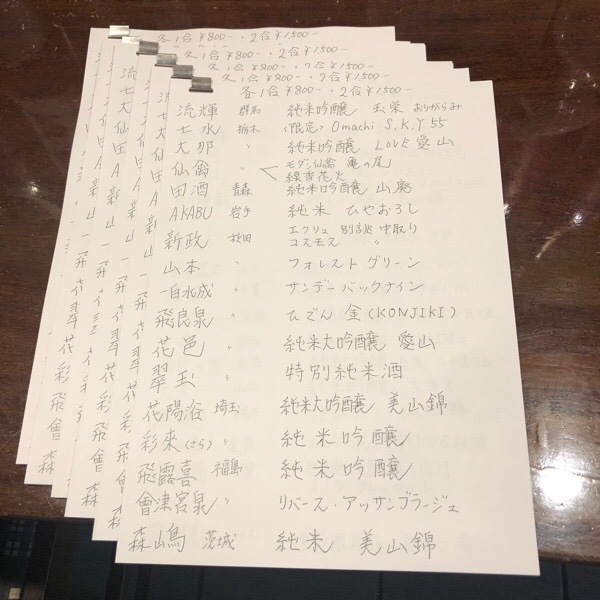 各1合¥800-, 2合¥1,500-
各1合¥800-, 2合¥1,500-
各1合¥800-, 2合¥1,500-
各1合¥800-, 2合¥1,500-
各1合¥800-, 2合¥1,500-
流輝 群馬 純米吟醸 玉栄 おりがらみ
七水 栃木 (限定) Omachi S.K.Y 55
大那 〃 純米吟醸 LOVE 愛山
仙禽 〃 モダン仙禽 亀の尾
線香花火
田酒 青森 純米吟醸 山廃
AKABU 岩手 純米 ひやおろし
新政 秋田 エクリュ 別誂 中取り
コスモス 〃
山本 〃 フォレスト グリーン
一白水成 〃 サンデーバックナイン
飛良泉 〃 ひでん 金(KONJIKI)
花邑 〃 純米大吟醸 愛山
翠玉 〃 特別純米酒
花陽浴 埼玉 純米大吟醸 美山錦
彩來(さら) 〃 純米吟醸
飛露喜 福島 純米吟醸
會津宮泉 〃 リバース・アッサンブラージュ
森嶋 茨城 純米 美山錦